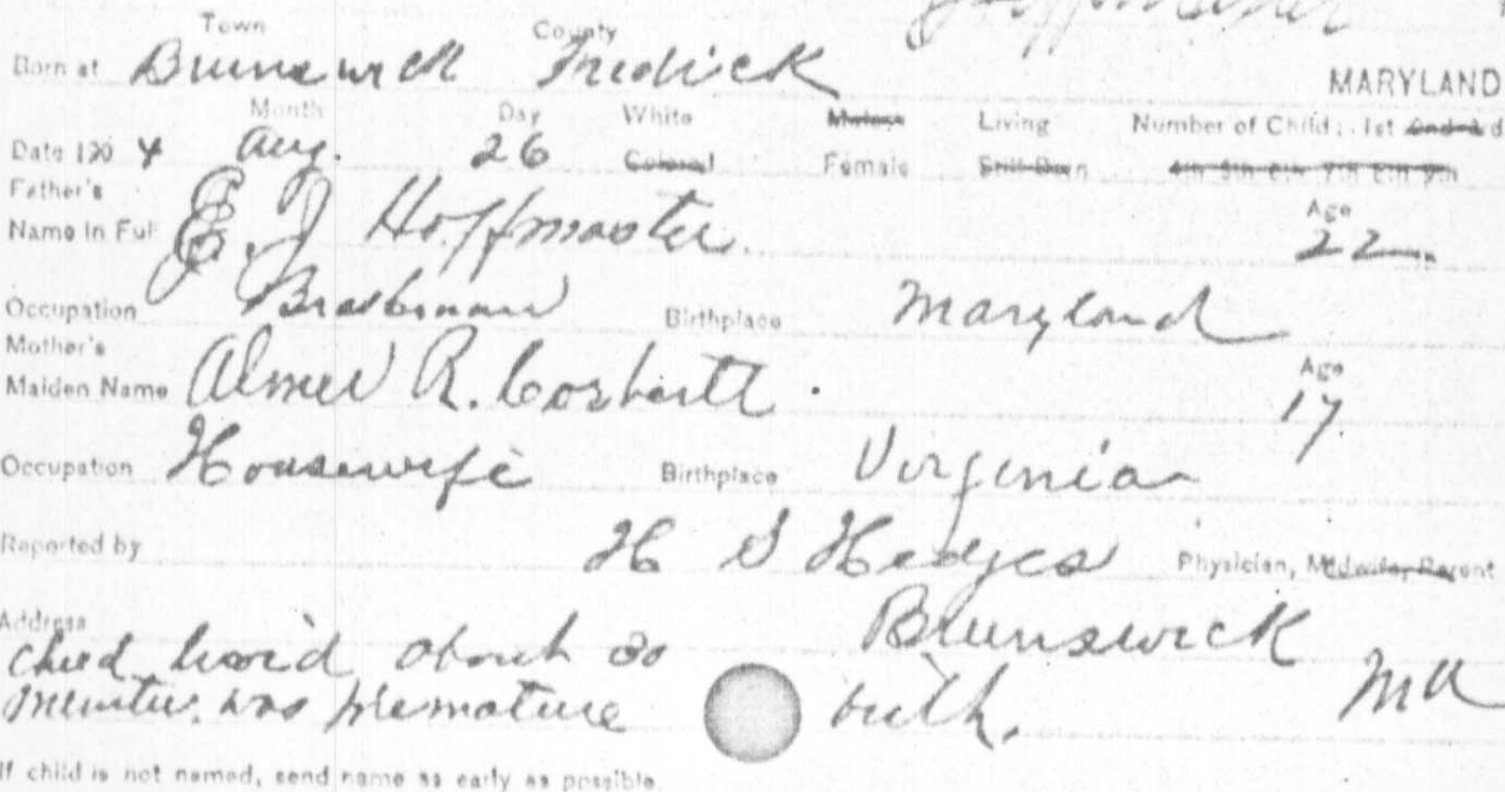 Hoffmaster
Town County
Born at Brunswick Fredrick MARYLAND
Month Day White Male Living Number of Child: 1st 2nd 3d
Date 190 4 Aug. 26 Colored Female Still Born 4th 5th 6th 7th 8th 9th
Father's Age
Name in Full E. J Hoffmaster. 22
Occupation Brakeman Birthplace Maryland
Mother's Age
Maiden Name R. Corbett. 17
Occupation Housewife Birthplace Virginia
Reported by H S Hedges Physician, Midwife, Parent
Address Brunswick Md
child livd about
minutes. was premature birth.
If child is not named, send name as early as possible.